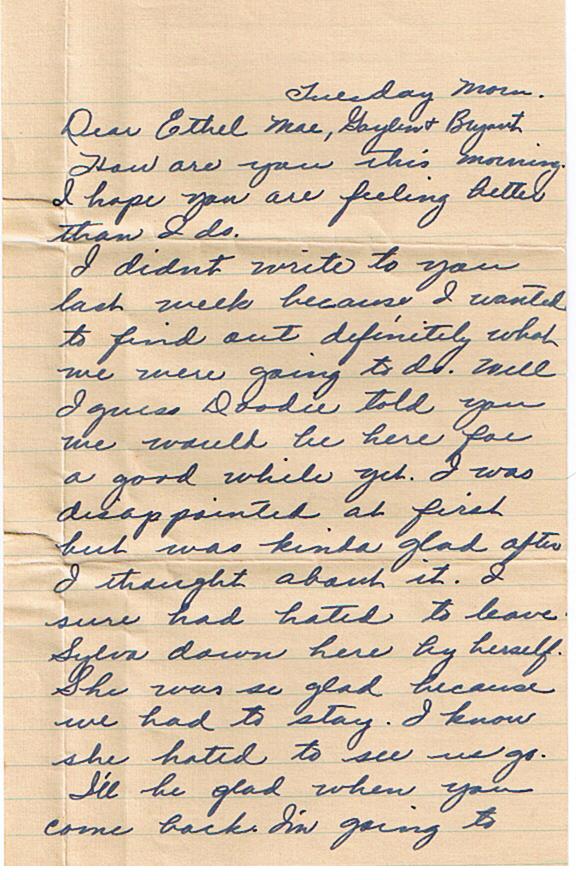 Tuesday Morn.
Dear Ethel Mae, Gaylen & Bryant
How are you this morning.
I hope you are feeling better
than I do.
I didn't write to you
last week because I wanted
to find out definitely what
we were going to do. Well
I guess Doodie told you
we would be here for
a good while yet. I was
disappointed at first
but was kinda glad after
I thought about it. I
sure had hated to leave
Sylva down here by herself.
She was so glad because
we had to stay. I know
she hated to see us go.
I'll be glad when you
come back. I'm going to